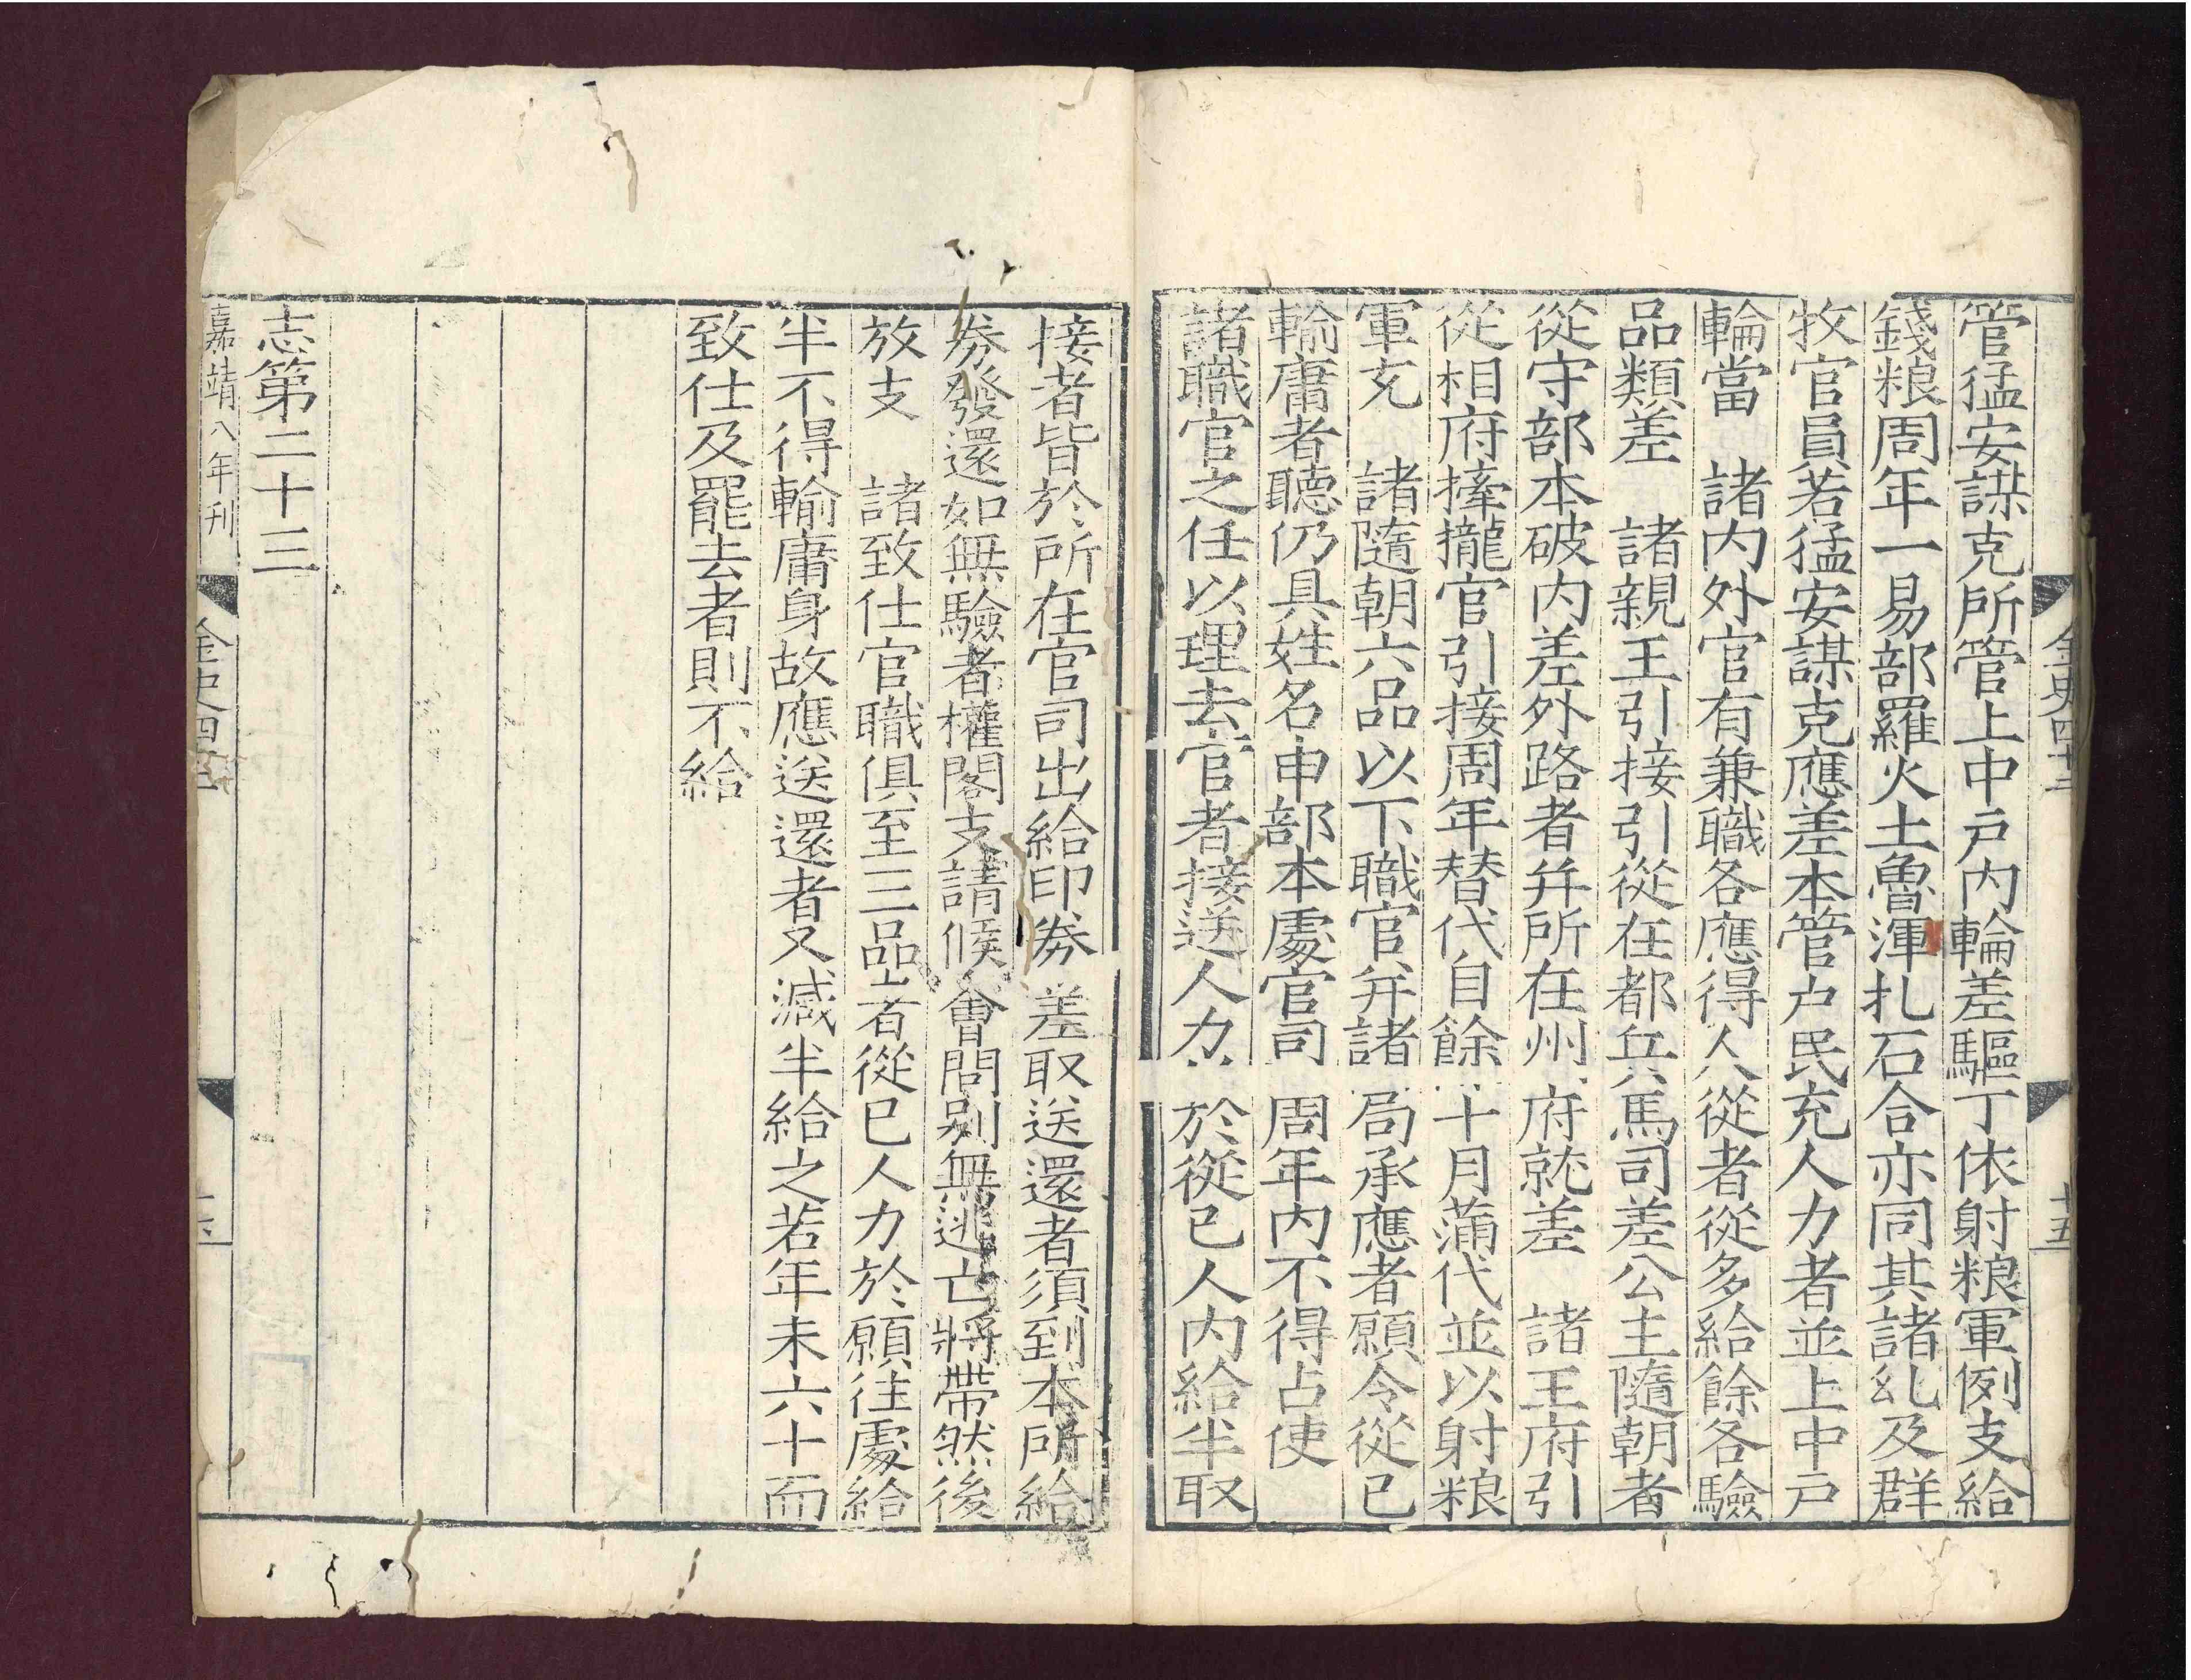 金史四十二
十五
管猛安謀克所管上中戶内輪差驅丁依射粮軍例支給
錢粮周年一易部羅火土魯渾扎石合亦同其諸乣及群
牧官員若猛安謀克應差本管户民充人力者並上中戶
輪當　諸内外官有兼職各應得人從者從多給餘各驗
品類差　諸親王引接引從在都兵馬司差公主隨朝者
從守部本破内差外路者并所在州府就差　諸王府引
從相府捧攏官引接周年替代自餘十月滿代並以射粮
軍充　諸隨朝六品以下職官并諸局承應者願令從已
輸庸者聽仍具姓名申部本處官司周年内不得占使
諸職官之任以理去官者接送人力於從已人内給半取
接者皆於所在官司出給印券差取送還者須到本所給
券發還如無驗者權閣支請候會問别無逃亡將帶然後
放支　諸致仕官職俱至三品者從已人力於願往處給
半不得輸庸身故應送還者又减半給之若年未六十而
致仕及罷去者則不給
志第二十三
嘉靖八年刊
金史四
十六